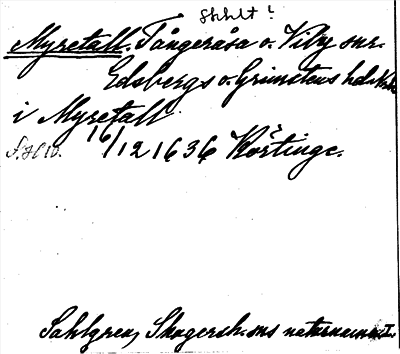 Myretall. Tångeråsa o. Viby snr.
Edsbergs o. Grimstens hdr.
i Myretall
16/12 1636 Körtinge.
Sahlgren, Skagersh. sns naturnamn I.